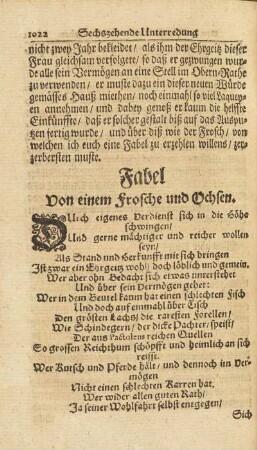 1022 Sechszehende Unterredung
nicht zwey Jahr bekleidet / als ihm der Ehrgeitz dieser
Frau gleichsam verfolgete / so daß er gezwungen wur-
de alle sein Vermögen an eine Stell im Obern-Rathe
zu verwenden / er muste dazu ein dieser neuen Würde
gemässes Hauß miethen / noch einmahl so viel Laquey-
en annehmen / und dabey genoß er kaum die helffte
Einkünffte / daß er solcher gestalt biß auf das Ausput-
tzen fertig wurde / und über diß wie der Frosch / von
welchen ich euch eine Fabel zu erzehlen willens / zer-
zerbersten muste.
Fabel
Von einem Frosche und Ochsen.
Durch eigenes Verdienst sich in die Höhe
schwingen /
Und gerne mächtiger und reicher wollen
seyn /
Als Stand und Herkunfft mit sich bringen
Ist zwar ein Ehrgeitz wohl / doch löblich und gemein.
Wer aber ohn Bedacht sich etwas unterstehet
Und über sein Vermögen gehet:
Wer in dem Beutel kaum hat einen schlechten Fisch
Und doch auf einmahl über Tisch
Den grösten Lachs / die raresten Forellen /
Wie Schindegern / der dicke Pachter / speist /
Der aus Pactolens reichen Quellen
So grossen Reichthum schöpfft und heimlich an sich
reisst.
Wer Kutsch und Pferde hält / und dennoch im Ver-
mögen
Nicht einen schlechten Karren hat,
Wer wider allen guten Rath /
Ja seiner Wohlfahrt selbst entgegen /
Sich